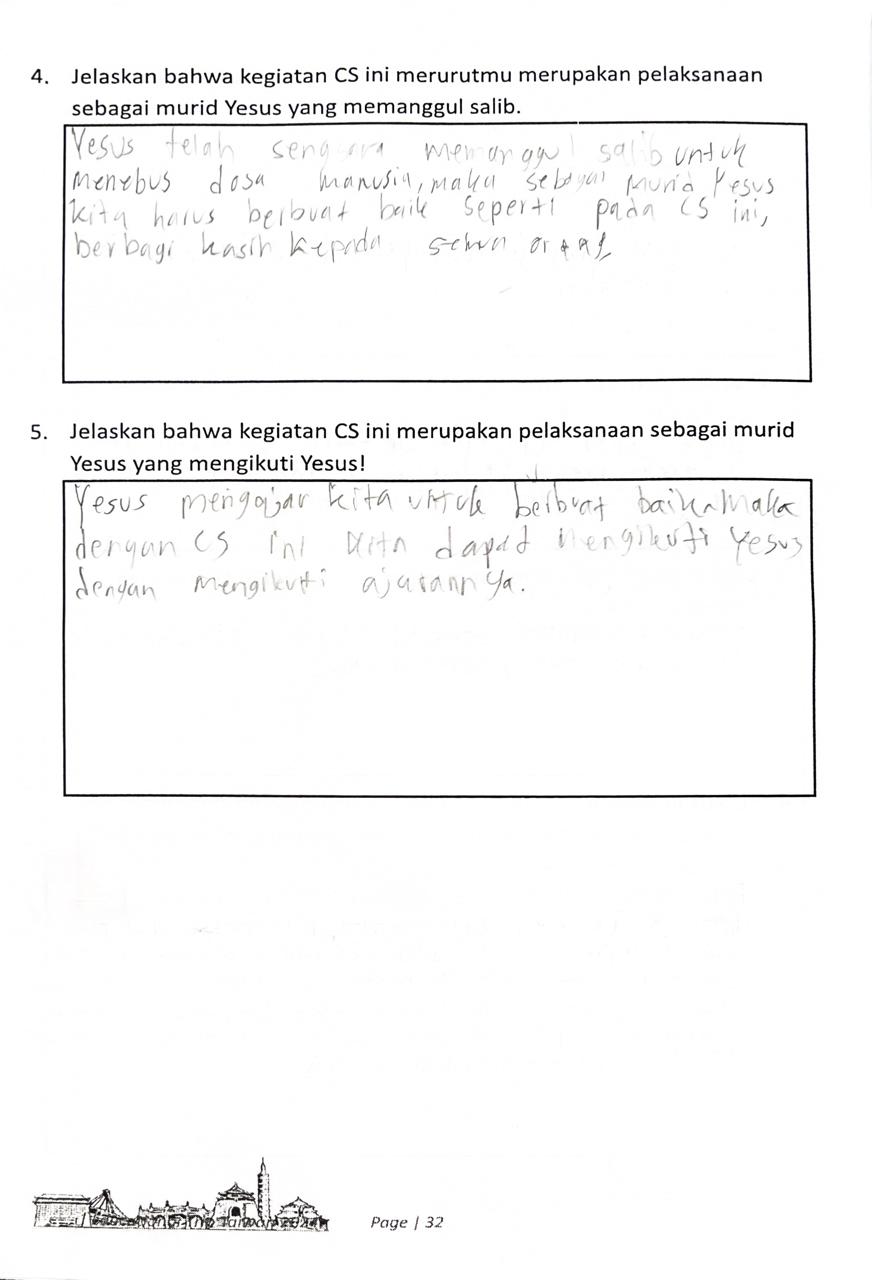 4. Jelaskan bahwa kegiatan CS ini merurutmu merupakan pelaksanaan
sebagai murid Yesus yang memanggul salib.
Yesus telah sengsara memanggul salib untuk
menebus dosa manusia, maka sebagai murid Yesus
kita harus berbuat baik seperti pada CS ini,
berbagi kasih kepada semua orang
5. Jelaskan bahwa kegiatan CS ini merupakan pelaksanaan sebagai murid
Yesus yang mengikuti Yesus!
Yesus mengajar kita untuk berbuat baik, maka
dengan CS ini kita dapat mengikuti Yesus
dengan mengikuti ajarannya.
Page | 32